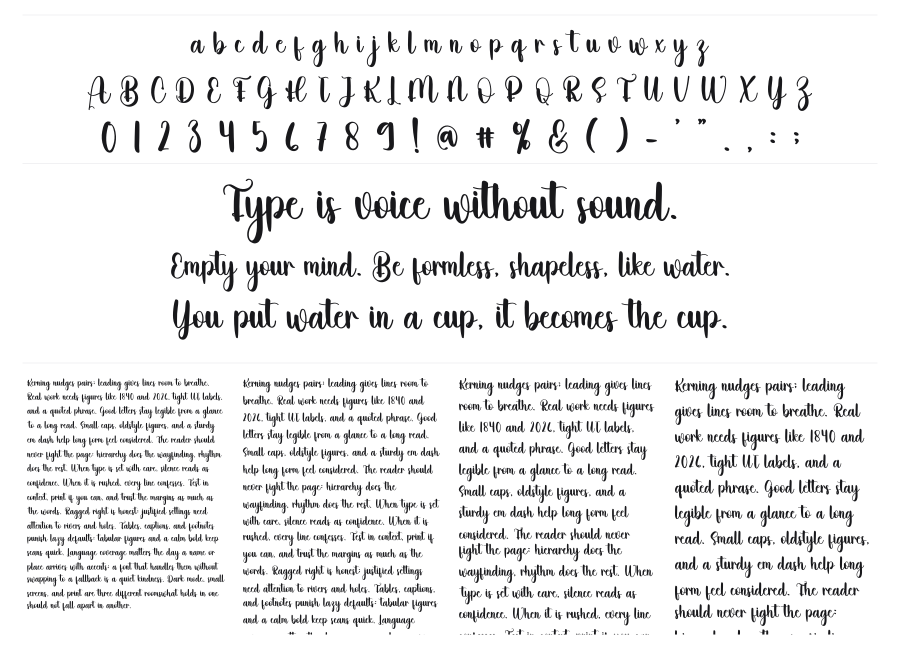 a b c d e f g h i j k l m n o p q r s t u v w x y z
A B C D E F G H I J K L M N O P Q R S T U V W X Y Z
0 1 2 3 4 5 6 7 8 9 ! @ # % & ( ) - ' " . , : ;
Type is voice without sound.
Empty your mind. Be formless, shapeless, like water.
You put water in a cup, it becomes the cup.
Kerning nudges pairs; leading gives lines room to breathe.
Real work needs figures like 1840 and 2026, tight UI labels,
and a quoted phrase. Good letters stay legible from a glance
to a long read. Small caps, oldstyle figures, and a sturdy
em dash help long form feel considered. The reader should
never fight the page: hierarchy does the wayfinding, rhythm
does the rest. When type is set with care, silence reads as
confidence. When it is rushed, every line confesses. Test in
context, print if you can, and trust the margins as much as
the words. Ragged right is honest; justified settings need
attention to rivers and holes. Tables, captions, and footnotes
punish lazy defaults: tabular figures and a calm bold keep
scans quick. Language coverage matters the day a name or
place arrives with accents: a font that handles them without
swapping to a fallback is a quiet kindness. Dark mode, small
screens, and print are three different rooms what holds in one
should not fall apart in another.
Kerning nudges pairs; leading gives lines room to
breathe. Real work needs figures like 1840 and
2026, tight UI labels, and a quoted phrase. Good
letters stay legible from a glance to a long read.
Small caps, oldstyle figures, and a sturdy em dash
help long form feel considered. The reader should
never fight the page: hierarchy does the
wayfinding, rhythm does the rest. When type is set
with care, silence reads as confidence. When it is
rushed, every line confesses. Test in context, print if
you can, and trust the margins as much as the
words. Ragged right is honest; justified settings
need attention to rivers and holes. Tables, captions,
and footnotes punish lazy defaults: tabular figures
and a calm bold keep scans quick. Language
Kerning nudges pairs; leading gives lines
room to breathe. Real work needs figures
like 1840 and 2026, tight UI labels,
and a quoted phrase. Good letters stay
legible from a glance to a long read.
Small caps, oldstyle figures, and a
sturdy em dash help long form feel
considered. The reader should never
fight the page: hierarchy does the
wayfinding, rhythm does the rest. When
type is set with care, silence reads as
confidence. When it is rushed, every line
Kerning nudges pairs; leading
gives lines room to breathe. Real
work needs figures like 1840 and
2026, tight UI labels, and a
quoted phrase. Good letters stay
legible from a glance to a long
read. Small caps, oldstyle figures,
and a sturdy em dash help long
form feel considered. The reader
should never fight the page: